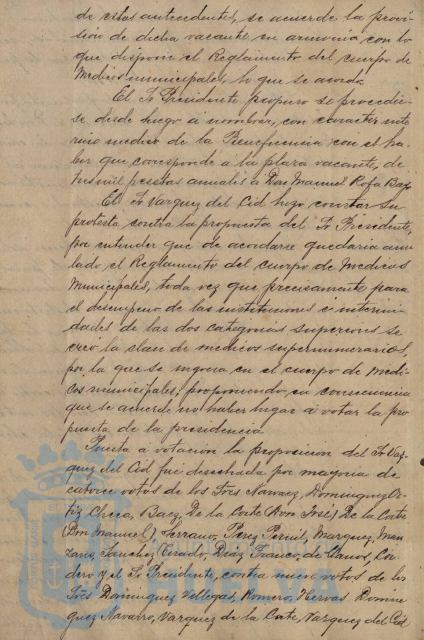 de estos antecedentes, se acuerde la provi-
sión de dicha vacante en armonía con lo
que dispone el Reglamento del cuerpo de
Médicos municipales, lo que se acordó.
El Sr Presidente propuso se procedie-
se desde luego á nombrar, con carácter inte
rino médico de la Beneficencia con el ha-
ber que corresponde á la plaza vacante, de
tres mil pesetas anuales á Don Manuel Rofa
El Sr Vazquez del Cid hizo constar su
protesta contra la propuesta del Sr Presidente,
por entender que de acordarse quedaria anu
lado el Reglamento del cuerpo de Médicos
Municipales, toda vez que precisamente para
el desempeño de las instituciones é interini-
dades de las dos categorías superiores se
creó la clase de médicos supernumerarios,
por la que se ingresa en el cuerpo de Médi-
cos municipales; proponiendo en consecuencia
que se acuerde no haber lugar á votar la pro
puesta de la presidencia.
Puesta á votación la proposición del Sr Vaz-
quez del Cid fué desechada por mayoria de
catorce votos de los Sres Narvaez, Dominguez Or-
tiz, Checa, Baez, De la Corte (Don José), De la Corte
(Don Manuel), Serrano, Perez Pernil, Marquez, Man
zano, Sanchez Cirado, Diaz, Franco, de Llanos, Cor
dero y el Sr Presidente, contra nueve votos de los
Sres Dominguez Villegas, Romero, Hervas Domin
guez Navarro, Vazquez de la Corte, Vazquez del Cid,